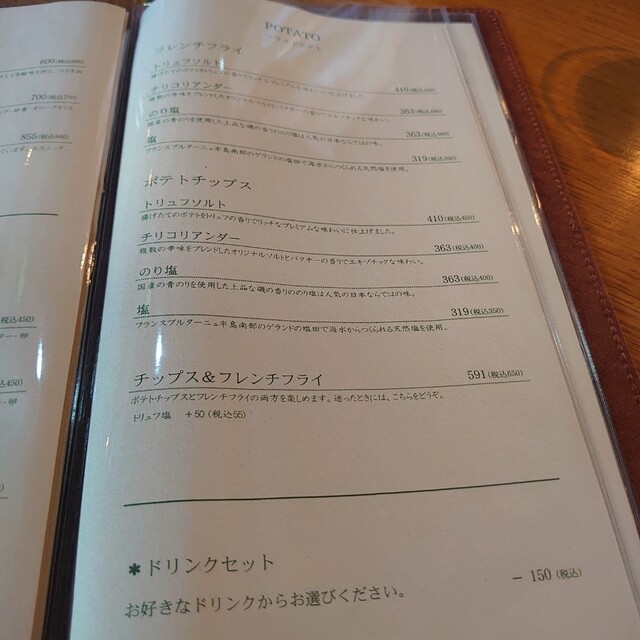 600(税込660)
700(税込770)
855(税込940)
(税込450)
ダー・卵
税込450)
ー・卵
POTATO
フライドポテト
フレンチフライ
トリュフソルト
410(税込450)
チリコリアンダー
363(税込400)
のり塩
国産の青のりを使用した上品な磯の香りののり塩は人気の日本ならではの味。
363(税込400)
塩
フランスブルターニュ半島南部のゲランドの塩田で海水からつくられる天然塩を使用。
319(税込350)
ポテトチップス
トリュフソルト
揚げたてのポテトをトリュフの香りでリッチなプレミアムな味わいに仕上げました。
410(税込450)
チリコリアンダー
複数の辛味をブレンドしたオリジナルソルトとパクチーの香りでエキゾチックな味わい。
363(税込400)
のり塩
国産の青のりを使用した上品な磯の香りののり塩は人気の日本ならではの味。
363(税込400)
塩
フランスブルターニュ半島南部のゲランドの塩田で海水からつくられる天然塩を使用。
319(税込350)
チップス&フレンチフライ 591(税込650)
ポテトチップスとフレンチフライの両方を楽しめます。迷ったときには、こちらをどうぞ。
トリュフ塩 +50(税込55)
*ドリンクセット
お好きなドリンクからお選びください。
− 150(税込)